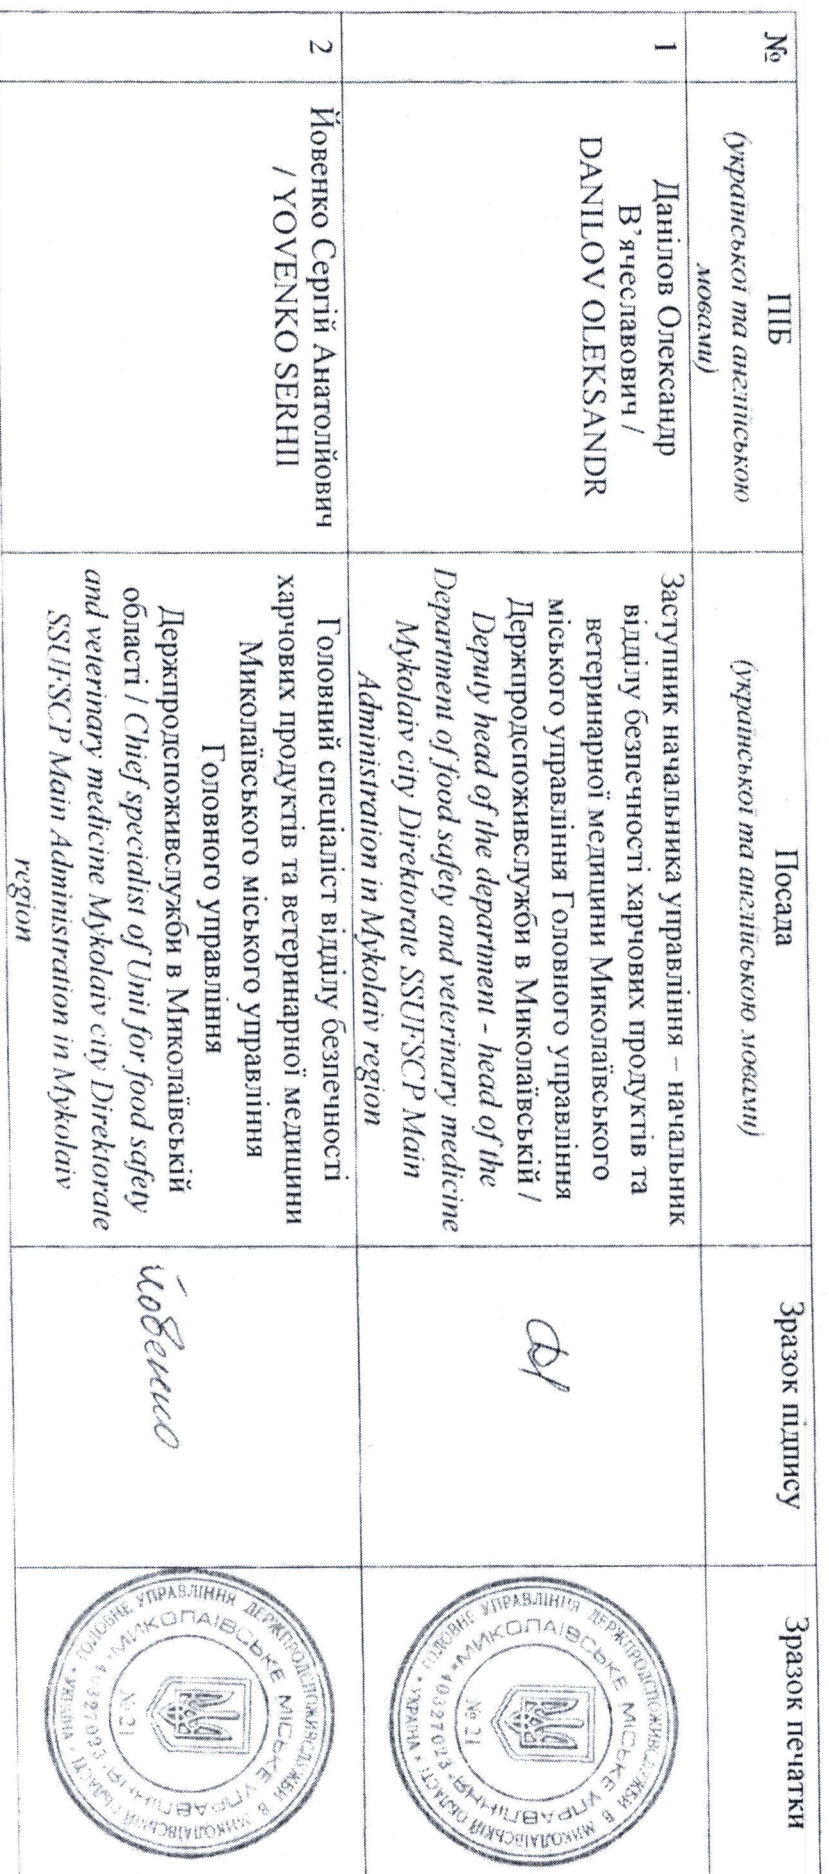 №
ПІБ
(української та англійською
мовами)
Посада
(української та англійською мовами)
Зразок підпису
Зразок печатки
1
Данілов Олександр
В’ячеславович /
DANILOV OLEKSANDR
Заступник начальника управління – начальник
відділу безпечності харчових продуктів та
ветеринарної медицини Миколаївського
міського управління Головного управління
Держпродспоживслужби в Миколаївській /
Deputy head of the department - head of the
Department of food safety and veterinary medicine
Mykolaiv city Direktorate SSUFSCP Main
Administration in Mykolaiv region
ГОЛОВНЕ УПРАВЛІННЯ ДЕРЖПРОДСПОЖИВСЛУЖБИ В МИКОЛАЇВСЬКІЙ ОБЛАСТІ * УКРАЇНА *
МИКОЛАЇВСЬКЕ МІСЬКЕ УПРАВЛІННЯ * 40327023 *
№ 21
2
Йовенко Сергій Анатолійович
/ YOVENKO SERHII
Головний спеціаліст відділу безпечності
харчових продуктів та ветеринарної медицини
Миколаївського міського управління
Головного управління
Держпродспоживслужби в Миколаївській
області / Chief specialist of Unit for food safety
and veterinary medicine Mykolaiv city Direktorate
SSUFSCP Main Administration in Mykolaiv
region
Йовенко
ГОЛОВНЕ УПРАВЛІННЯ ДЕРЖПРОДСПОЖИВСЛУЖБИ В МИКОЛАЇВСЬКІЙ ОБЛАСТІ * УКРАЇНА *
МИКОЛАЇВСЬКЕ МІСЬКЕ УПРАВЛІННЯ * 40327023 *
№ 21